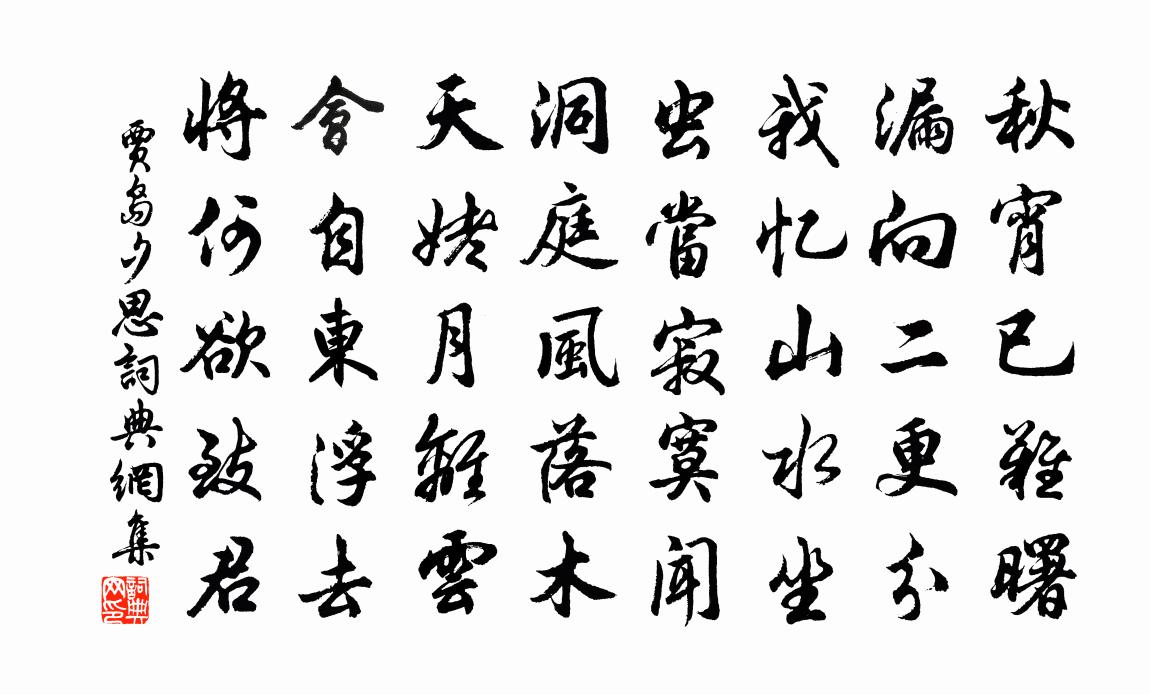 秋宵已難曙
漏向二更分
我忆山水坐
虫當寂寞聞
洞庭風落木
天姥月離雲
會自東浮去
將何欲致君
賈島夕思詞典網集
詞典
网印